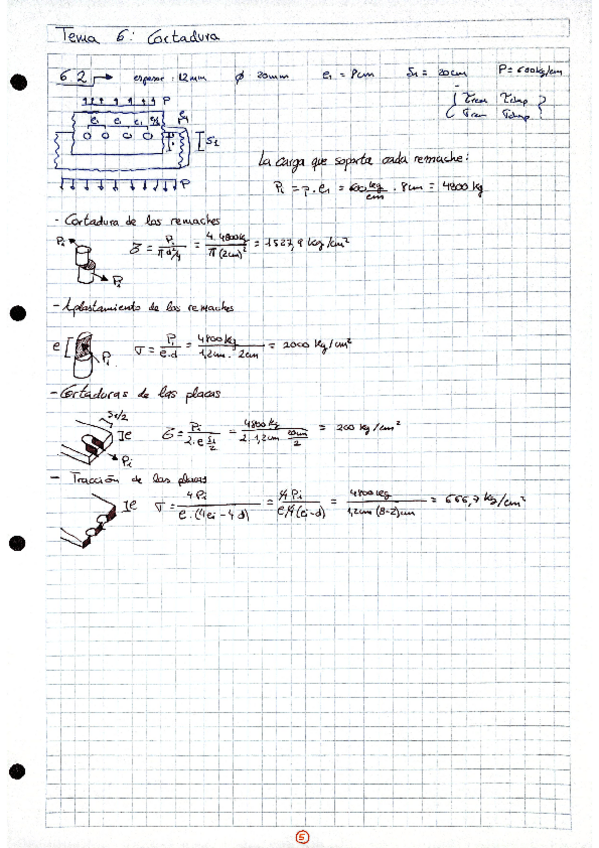 Tema 6: Cortadura
6.2 → espesor: 12mm ϕ 20mm e₁ = 8cm S₁ = 20cm P = 600kg/cm
P
e₁ e₁ e₁
S₂
P
La carga que soporta cada remache:
P₁ = p · e₁ = 600 kg/cm · 8cm = 4800 kg
- Cortadura de los remaches
P₁ P₁ Z = P₁/(π d²/4) = 4·4800kg/(π(2cm)²) = 1527,9 kg/cm²
- Aplastamiento de los remaches
e P₁ σ = P₁/(e·d) = 4800kg/(1,2cm · 2cm) = 2000 kg/cm²
- Cortaduras de las placas
S₁/2
Ie P₁ Z = P₁/(2·e S₁/2) = 4800kg/(2·1,2cm 20cm/2) = 200 kg/cm²
- Tracción de las placas
Ie σ = 4P₁/(e·(4e₁-4d)) = 4P₁/(e4(e₁-d)) = 4800kg/(1,2cm(8-2)cm) = 666,7 kg/cm²
5